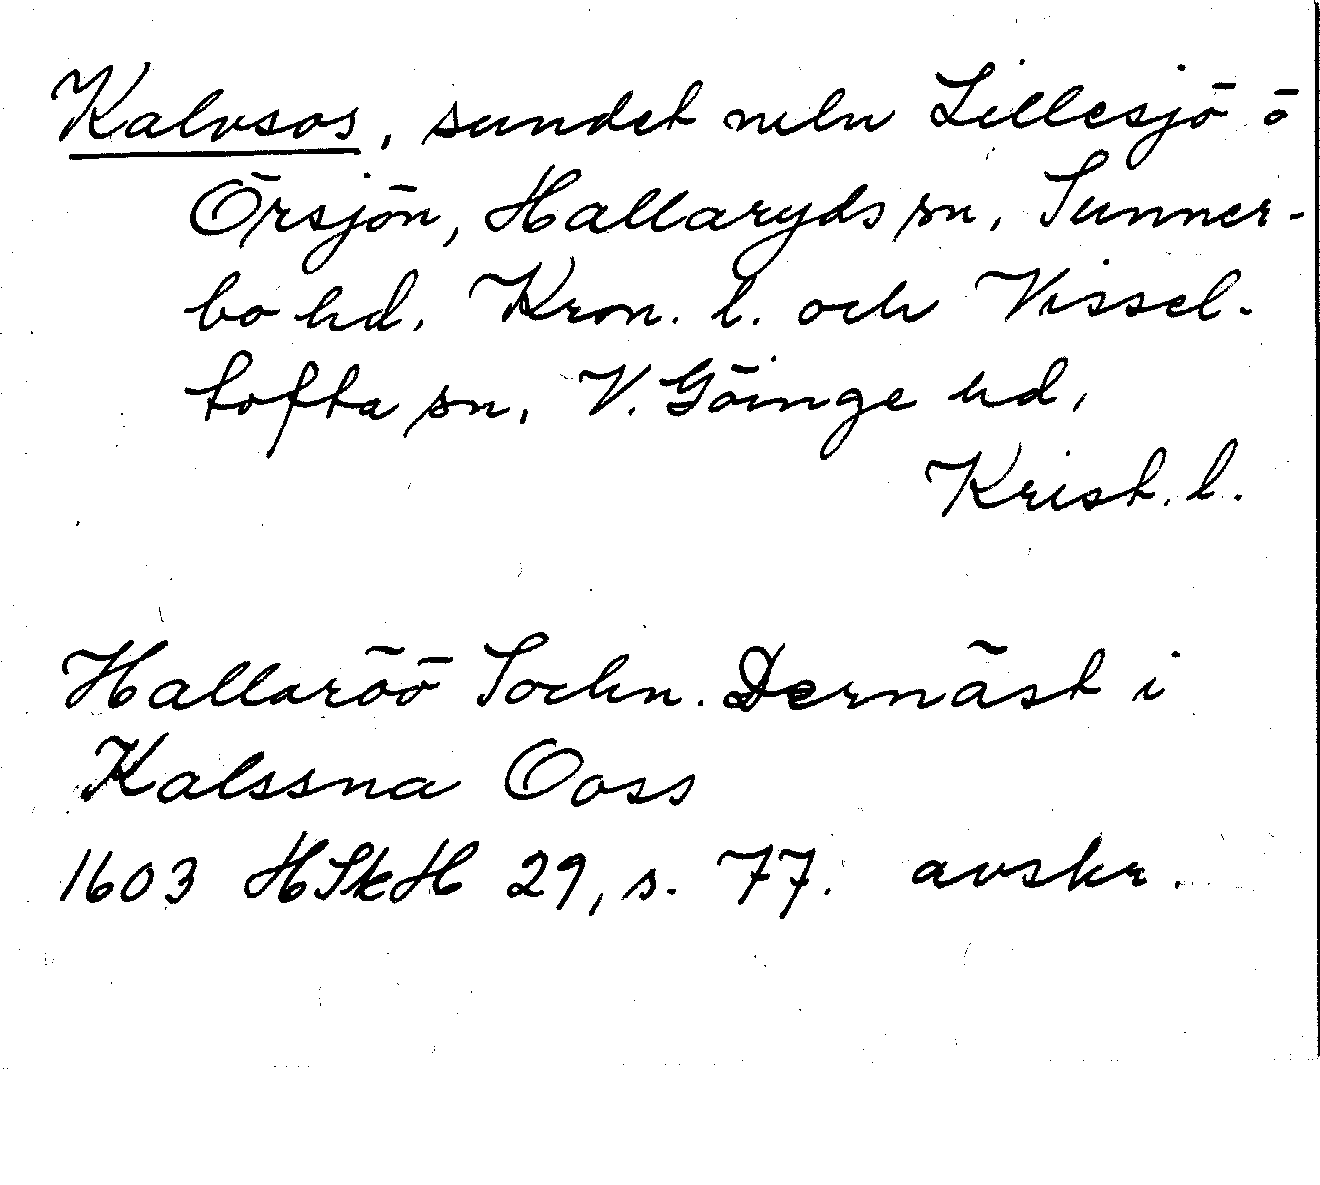 Kalvsos, sundet meln Lillesjö ö
Örsjön, Hallaryds sn, Sunner-
bo hd. Kron. l. och Vissel-
tofta sn, V. Göinge hd,
Krist. l.
Hallaröö Sochn. Dernäst i
Kalssna Ooss
1603 HSkH 29, s. 77. avskr.